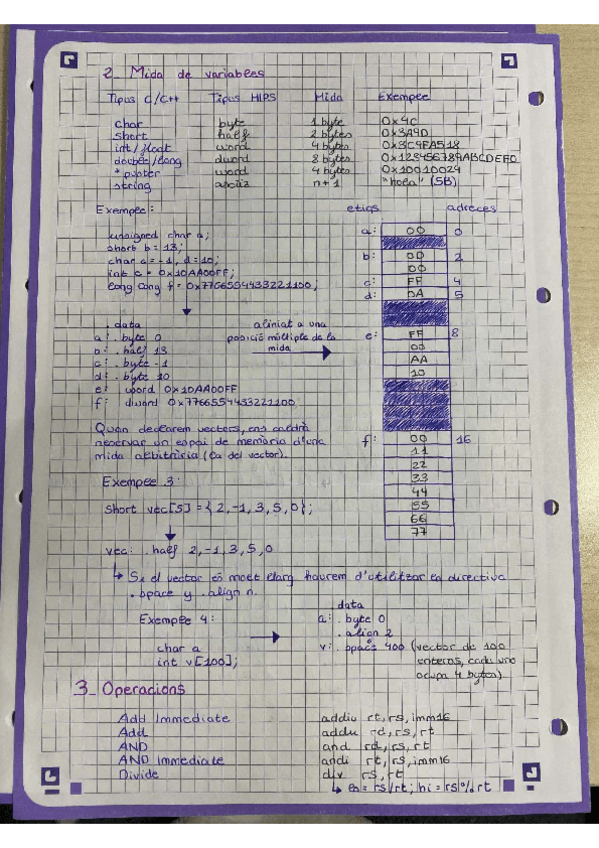 2_ Mida de variables
Tipus C/C++ Tipus MIPS Mida Exemple
char byte 1 byte 0x4C
short half 2 bytes 0x3A9D
int/float word 4 bytes 0x3C9FA518
double/long dword 8 bytes 0x123456789ABCDEF0
* punter word 4 bytes 0x10010024
string asciiz n+1 "hola" (5B)
Exemple: etiqs adreces
unsigned char a; a: 00 0
short b = 13;
char c = -1, d = 10; b: 0D 2
int e = 0x10AA00FF; 00
long long f = 0x7766554433221100; c: FF 4
d: 0A 5
.data aliniat a una
a: .byte 0 posició múltiple de la e: FF 8
b: .half 13 mida 00
c: .byte -1 AA
d: .byte 10 10
e: word 0x10AA00FF
f: dword 0x7766554433221100
Quan declarem vectors, ens caldrà f: 00 16
reservar un espai de memòria d'una 11
mida arbitrària (la del vector). 22
Exemple 3: 33
44
short vec[5] = { 2, -1, 3, 5, 0 }; 55
66
77
vec: .half 2, -1, 3, 5, 0
Si el vector és molt llarg haurem d'utilitzar la directiva
.space y .align n.
Exemple 4: data
a: .byte 0
.align 2
char a v: .space 400 (vector de 100
int v[100]; enteros, cada uno
ocupa 4 bytes)
3_ Operacions
Add Immediate addiu rt, rs, imm16
Add addu rd, rs, rt
AND and rd, rs, rt
AND Immediate andi rt, rs, imm16
Divide div rs, rt
lo = rs/rt; hi = rs%rt